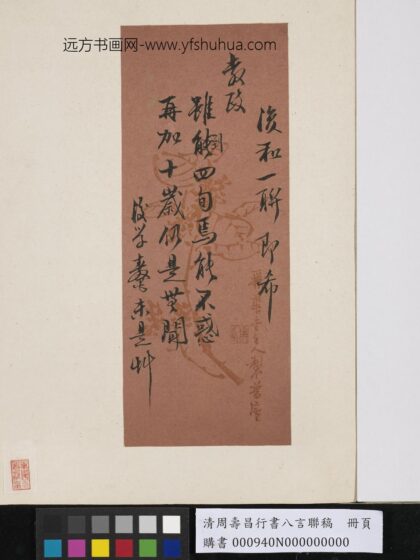 远方书画网-www.yfshuhua.com
復和一聯即希
教政
雖到四旬焉能不惑
再加十歲仍是無聞
後學壽未是艸
清周壽昌行書八言聯稿 冊頁
購書 000940N000000000